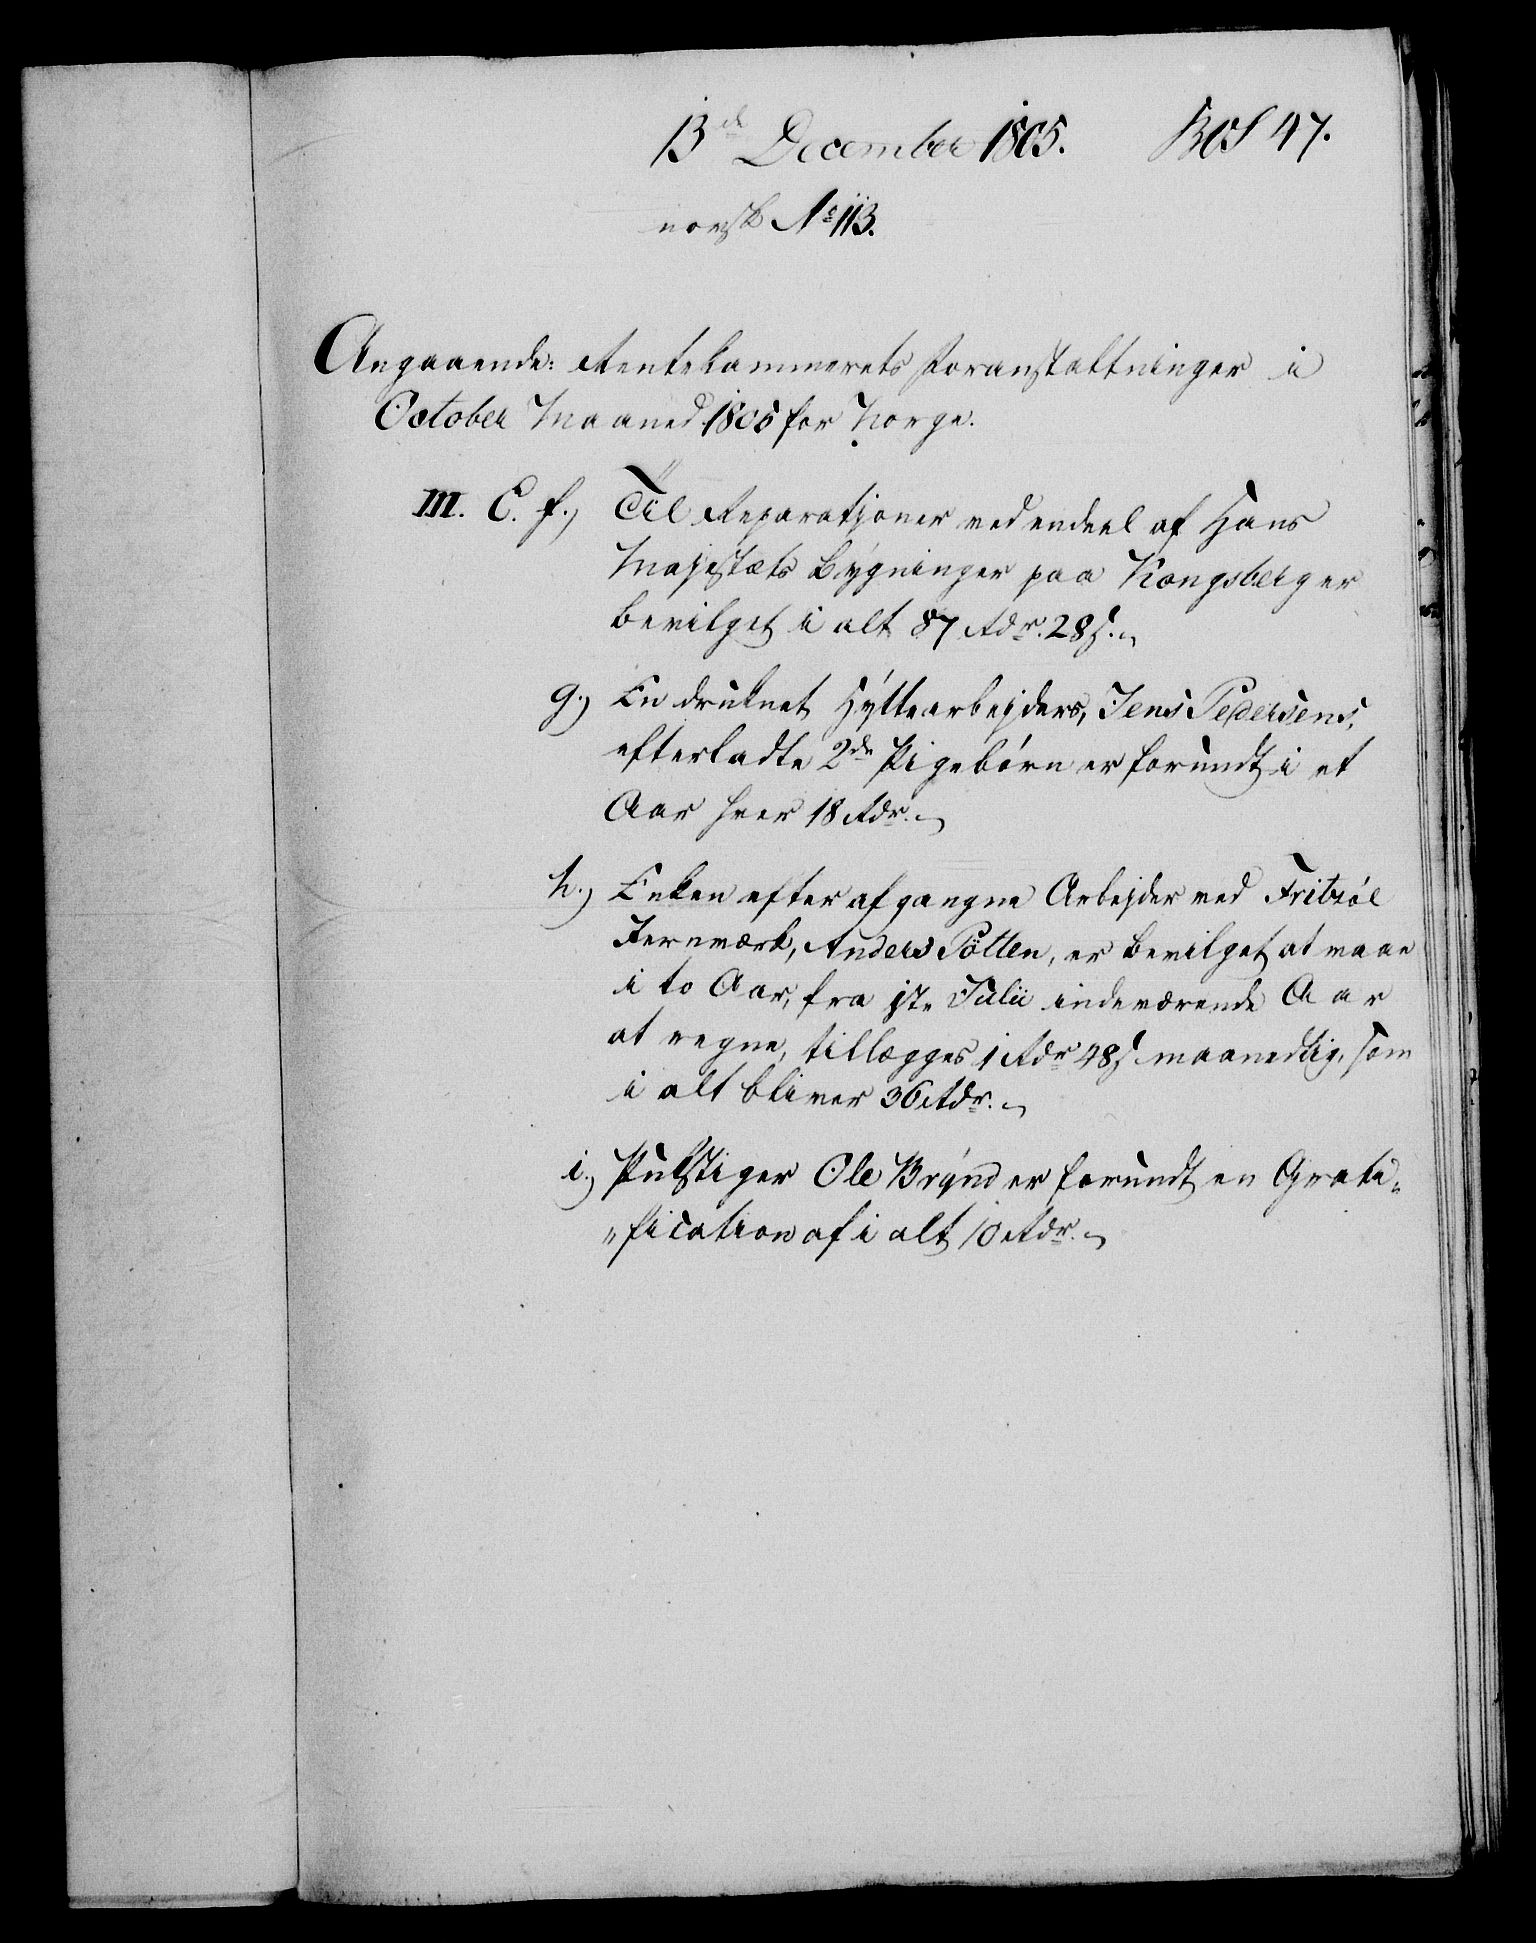 13de December 1805.
norsk No 113.
Angaaende: Rentekammerets Foranstaltninger i
October Maaned 1805 for Norge.
III. C. f.) Til Reparationer ved endeel af Hans
Majestæts Bygninger paa Kongsberg er
bevilget i alt 87 Rdr. 28 s.
g.) En druknet Hyttearbejders, Jens Pedersens,
efterladte 2de Pigebørn er forundt i et
Aar hver 18 Rdr.
h.) Enken efter afgangne Arbejder ved Fritzøe
Jernværk, Anders Pötten, er bevilget at maae
i to Aar, fra 1ste Julii indeværende Aar
at regne, tillægges 1 Rdr 48 s maanedlig, som
i alt bliver 36 Rdr.
i.) Pukstiger Ole Brynd er forundt en Grati-
fication af i alt 10 Rdr.